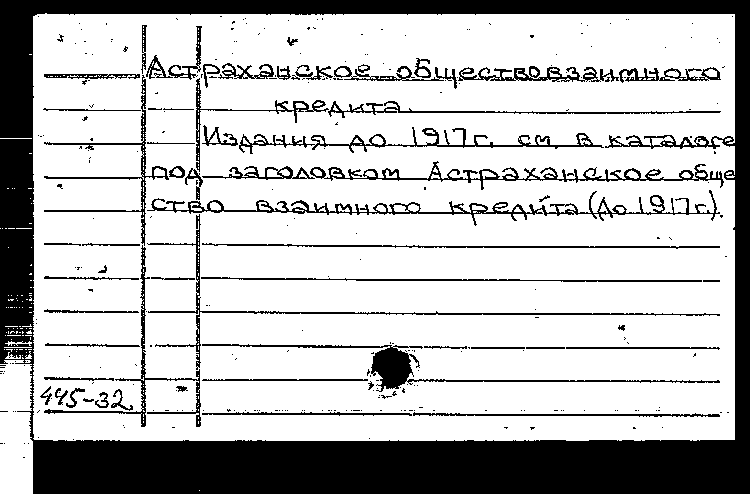 Астраханское общество взаимного
кредита.
Издания до 1917г. см. в каталоге
под заголовком Астраханское обще
ство взаимного кредита (до 1917г.).
445-32